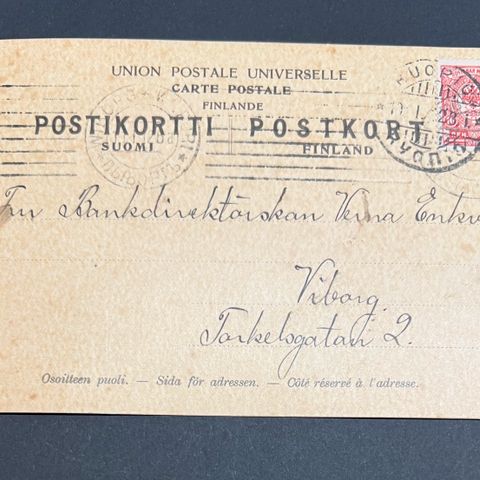 UNION POSTALE UNIVERSELLE
CARTE POSTALE
FINLANDE
POSTIKORTTI POSTKORT
SUOMI FINLAND
KUOPIO
Fru Bankdirektörskan Verna Enkv
Viborg.
Torkelsgatan 2.
Osoitteen puoli. — Sida för adressen. — Côté réservé à l'adresse.